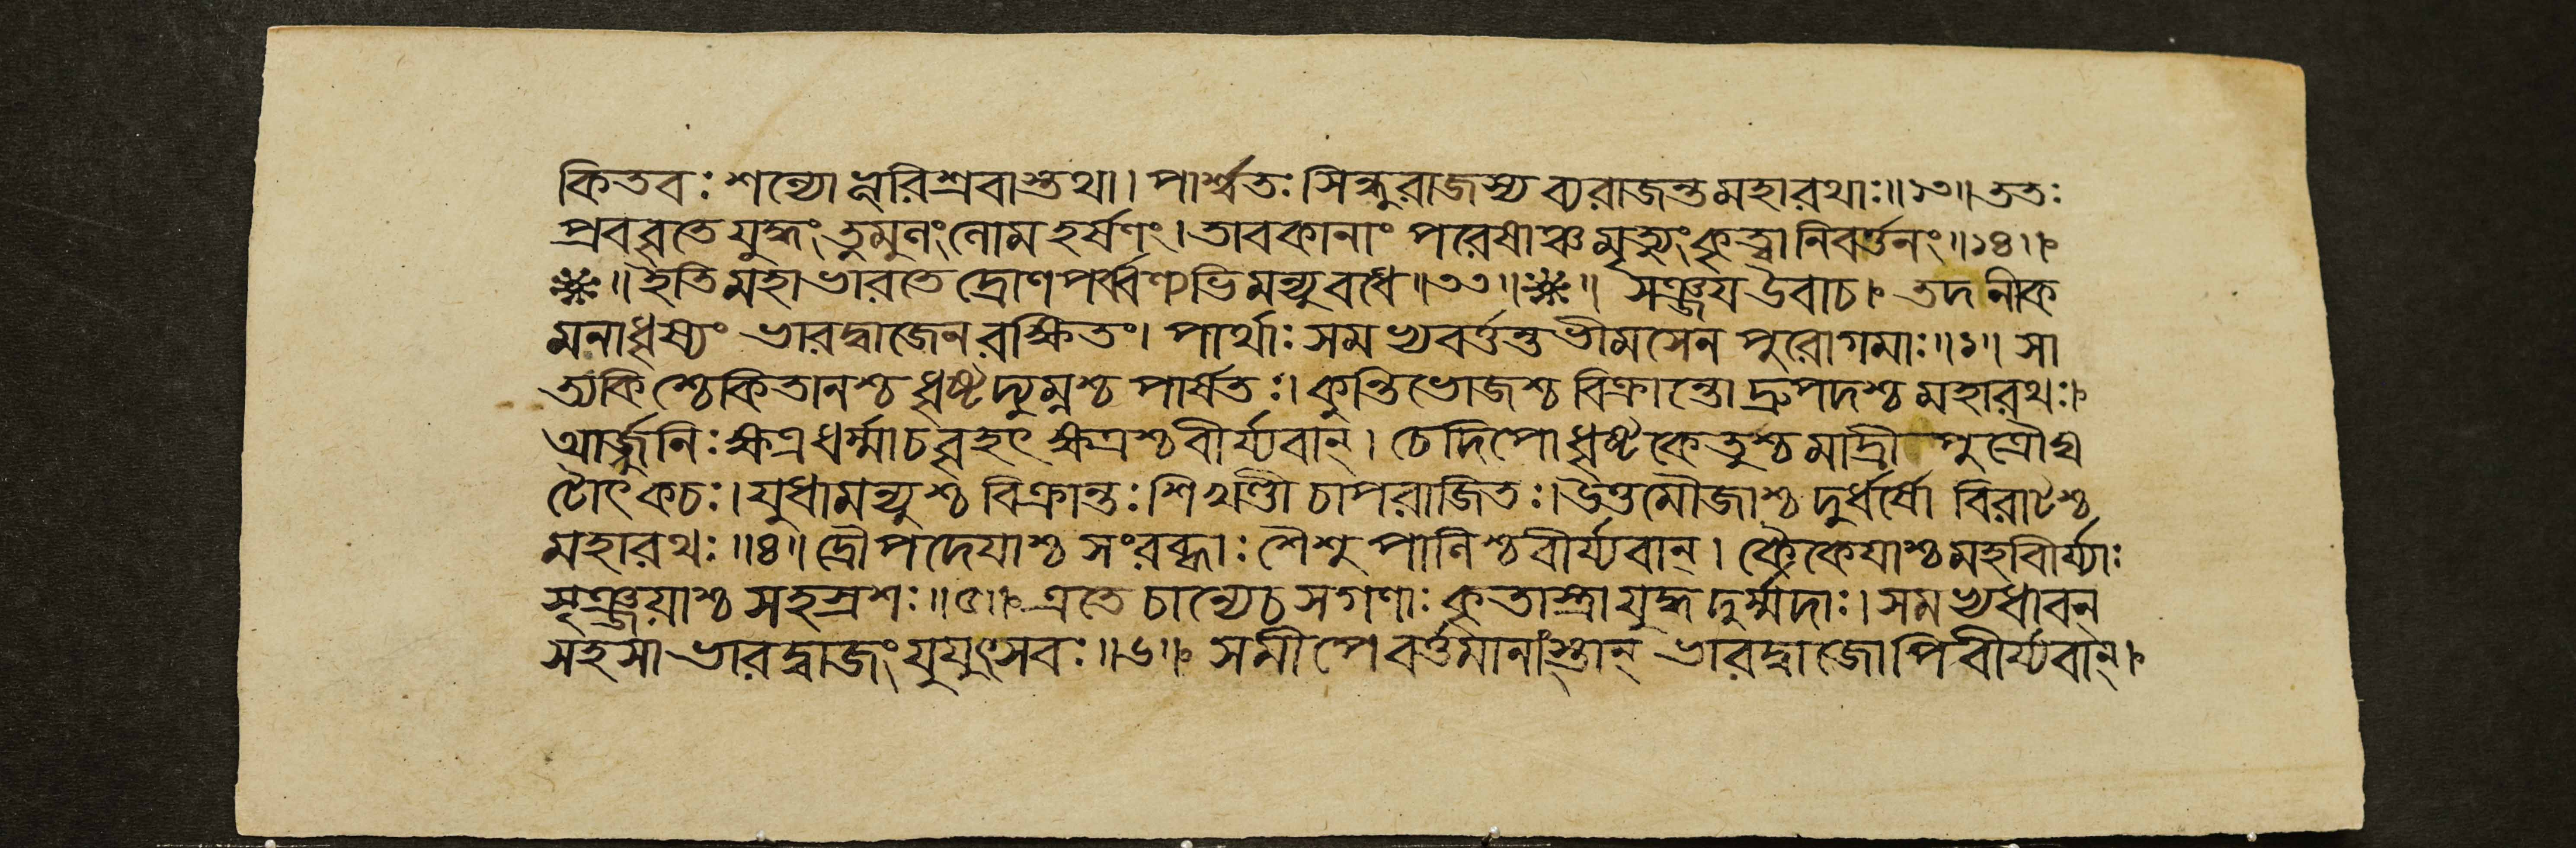 কিতবঃ শল্যো ভূরিশ্রবাস্তথা। পার্শ্বতঃ সিন্ধুরাজস্য ব্যরাজন্ত মহারথাঃ॥১৩॥ ততঃ
প্রববৃতে যুদ্ধং তুমুলং লোমহর্ষণং। তাবকানাং পরেষাঞ্চ মৃত্যুং কৃত্বা নিবর্ত্তনং॥১৪॥
॥ ইতি মহাভারতে দ্রোণপর্ব্বণ্যভিমন্যুবধে॥৩৩॥ ॥ সঞ্জয উবাচ। তদনীক
মনাধৃষ্যং ভারদ্বাজেন রক্ষিতং। পার্থাঃ সমভ্যবর্ত্তন্ত ভীমসেন পুরোগমাঃ॥১॥ সা
ত্যকিশ্চেকিতানশ্চ ধৃষ্টদ্যুম্নশ্চ পার্ষতঃ। কুন্তিভোজশ্চ বিক্রান্তো দ্রুপদশ্চ মহারথঃ।
আর্জ্জুনিঃ ক্ষত্রধর্ম্মা চ বৃহৎক্ষত্রশ্চ বীর্য্যবান্। চেদিপো ধৃষ্টকেতুশ্চ মাদ্রীপুত্রৌ ঘ
টোৎকচঃ। যুধামন্যুশ্চ বিক্রান্তঃ শিখণ্ডী চাপরাজিতঃ। উত্তমৌজাশ্চ দুর্ধর্ষো বিরাটশ্চ
মহারথঃ॥৪॥ দ্রৌপদেযাশ্চ সংরব্ধাঃ শৈশুপালিশ্চ বীর্য্যবান্। কৈকেযাশ্চ মহাবীর্য্যাঃ
সৃঞ্জয়াশ্চ সহস্রশঃ॥৫॥ এতে চান্যে চ সগণাঃ কৃতাস্ত্রা যুদ্ধদুর্ম্মদাঃ। সমভ্যধাবন্
সহসা ভারদ্বাজং যুযুৎসবঃ॥৬॥ সমীপে বর্ত্তমানাংস্তান্ ভারদ্বাজোপি বীর্য্যবান্।